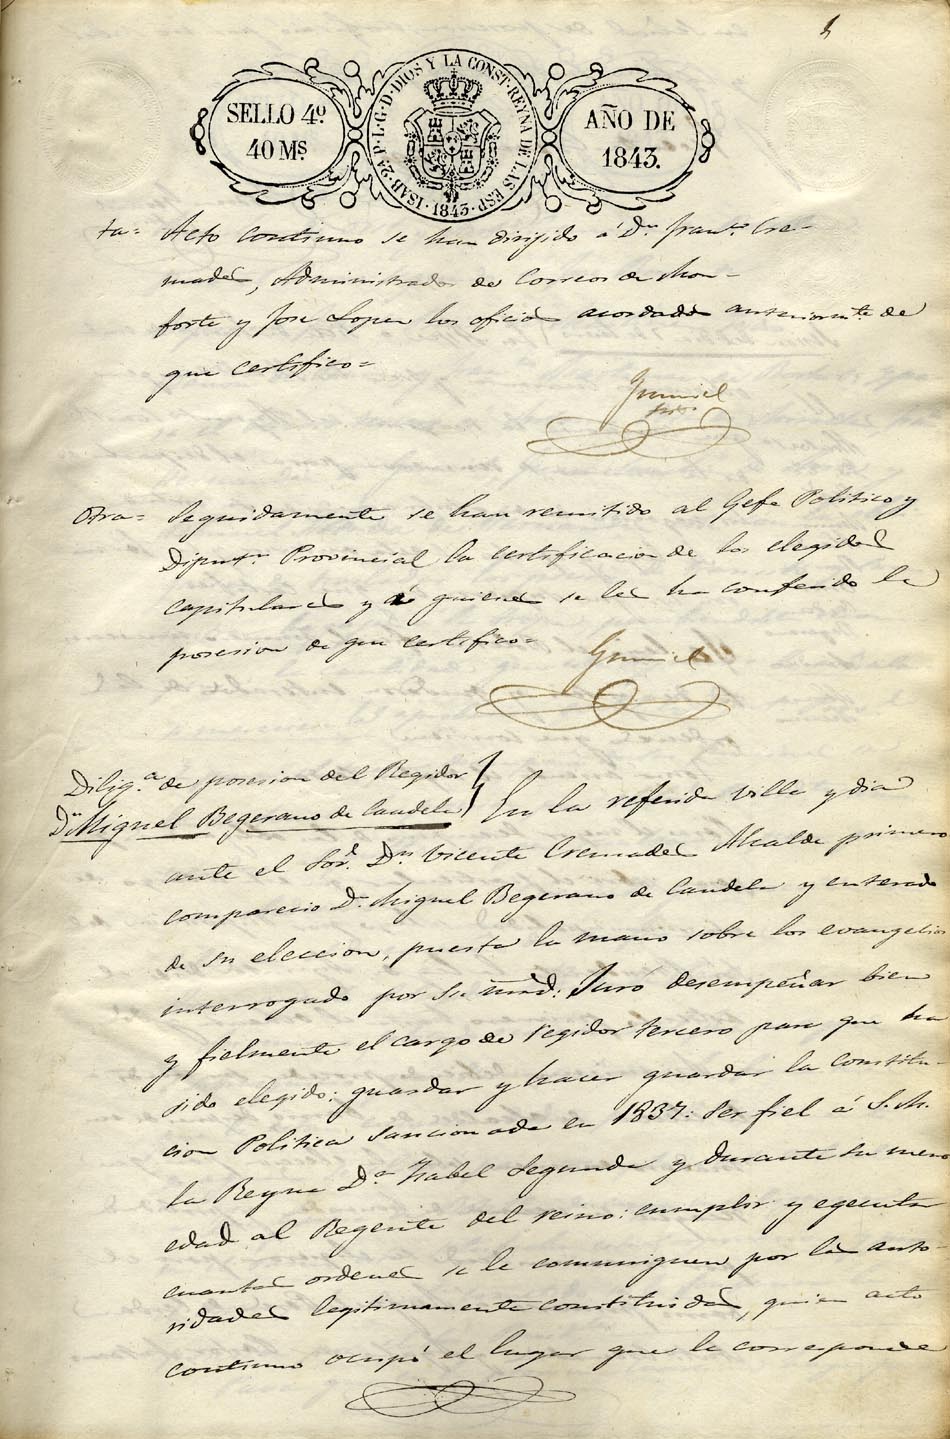 SELLO 4º
40 Ms.
ISAB. 2ª P. L. G. D. DIOS Y LA CONST. REYNA DE LAS ESP. 1843.
AÑO DE
1843.
ta= Acto continuo se han dirijido á Dn. Franco. Cre-
mades, Administrador de Correos de Mon-
forte y Jose Lopez los oficios acordados anteriormte. de
que certifico=
Otra= Seguidamente se han remitido al Gefe Politico y
Diputn. Provincial la certificacion de los elegidos
capitulares y á quienes se les ha conferido la
posesion de que certifico=
Diliga. de posesion del Regidor
Dn. Miguel Begerano de Candela
En la referida villa y dia
ante el Sor. Dn. Vicente Cremades Alcalde primero
comparecio Dn. Miguel Begerano de Candela y enterado
de su eleccion, puesta la mano sobre los evangelios
interrogado por su mrd: Juró desempeñar bien
y fielmente el cargo de regidor tercero para que ha
sido elegido: guardar y hacer guardar la constitu-
cion Politica sancionada en 1837: Ser fiel á S. M.
la Reyna Da. Isabel Segunda y durante su menor
edad al Regente del reino: cumplir y egecutar
cuantas ordenes se le comuniquen por las auto-
ridades legitimamente constituidas, quien acto
continuo ocupó el lugar que le corresponde